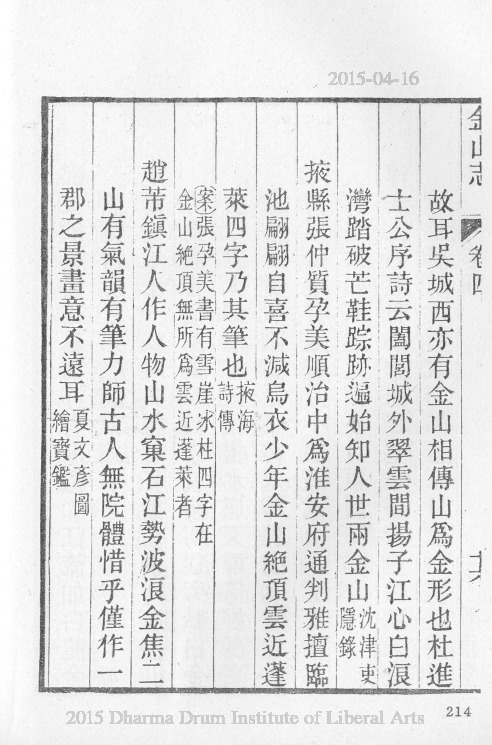 2015-04-16
金山志
卷四
故耳吳城西亦有金山相傳山爲金形也杜進
士公序詩云闔閭城外翠雲間揚子江心白浪
灣踏破芒鞋踪跡遍始知人世兩金山沈津吏
隱錄
掖縣張仲質孕美順治中爲淮安府通判雅擅臨
池翩翩自喜不減烏衣少年金山絶頂雲近蓬
萊四字乃其筆也掖海
詩傳
案張孕美書有雪崖冰柱四字在
金山絶頂無所爲雲近蓬萊者
趙芾鎮江人作人物山水窠石江勢波浪金焦二
山有氣韻有筆力師古人無院體惜乎僅作一
郡之景畫意不遠耳夏文彥圖
繪寶鑑
214
2015 Dharma Drum Institute of Liberal Arts